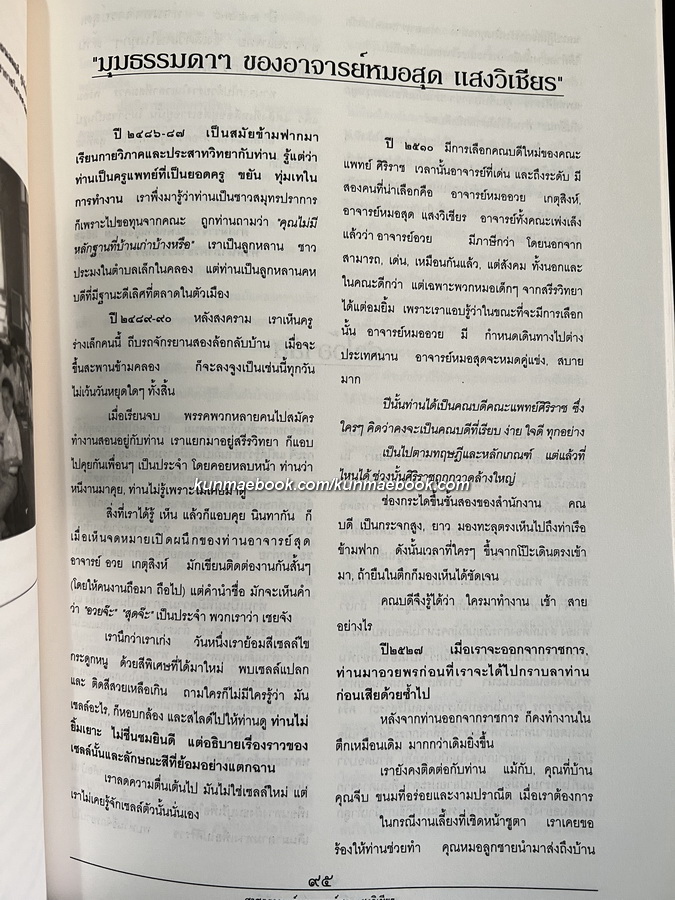 "มุมธรรมดาๆ ของอาจารย์หมอสุด แสงวิเชียร"
ปี ๒๔๘๖-๘๗ เป็นสมัยข้ามฟากมา
เรียนกายวิภาคและประสาทวิทยากับท่าน รู้แต่ว่า
ท่านเป็นครูแพทย์ที่เป็นยอดครู ขยัน ทุ่มเทใน
การทำงาน เราพึ่งมารู้ว่าท่านเป็นชาวสมุทรปราการ
ก็เพราะไปขอทุนจากคณะ ถูกท่านถามว่า "คุณไม่มี
หลักฐานที่บ้านเก่าบ้างหรือ" เราเป็นลูกหลาน ชาว
ประมงในตำบลเล็กในคลอง แต่ท่านเป็นลูกหลานคห
บดีที่มีฐานะดีเลิศที่ตลาดในตัวเมือง
ปี ๒๔๘๙-๙๐ หลังสงคราม เราเห็นครู
ร่างเล็กคนนี้ ถีบรถจักรยานสองล้อกลับบ้าน เมื่อจะ
ขึ้นสะพานข้ามคลอง ก็จะลงจูงเป็นเช่นนี้ทุกวัน
ไม่เว้นวันหยุดใดๆ ทั้งสิ้น
เมื่อเรียนจบ พรรคพวกหลายคนไปสมัคร
ทำงานสอนอยู่กับท่าน เราแยกมาอยู่สรีรวิทยา ก็แอบ
ไปคุยกันเพื่อนๆ เป็นประจำ โดยคอยหลบหน้า ท่านว่า
หนีงานมาคุย, ท่านไม่รู้เพราะ
kunmaebook.com/kunmaebook.com
สิ่งที่เราได้รู้ เห็น แล้วก็แอบคุย นินทากัน ก็
เมื่อเห็นจดหมายเปิดผนึกของท่านอาจารย์สุด
อาจารย์ อวย เกตุสิงห์ มักเขียนติดต่องานกันสั้นๆ
(โดยให้คนงานถือมา ถือไป) แต่คำนำชื่อ มักจะเห็นคำ
ว่า "อวยจ๊ะ" "สุดจ๊ะ" เป็นประจำ พวกเราว่า เชยจัง
เรานึกว่าเราเก่ง วันหนึ่งเราย้อมสีเซลล์ไข
กระดูกหนู ด้วยสีพิเศษที่ได้มาใหม่ พบเซลล์แปลก
และ ติดสีสวยเหลือเกิน ถามใครก็ไม่มีใครรู้ว่า มัน
เซลล์อะไร, ก็หอบกล้อง และสไลด์ไปให้ท่านดู ท่านไม่
ยิ้มเยาะ ไม่ชื่นชมยินดี แต่อธิบายเรื่องราวของ
เซลล์นั้นและลักษณะสีที่ย้อมอย่างแตกฉาน
เราลดความตื่นเต้นไป มันไม่ใช่เซลล์ใหม่ แต่
เราไม่เคยรู้จักเซลล์ตัวนั้นนั่นเอง
ปี ๒๕๑๐ มีการเลือกคณบดีใหม่ของคณะ
แพทย์ ศิริราช เวลานั้นอาจารย์ที่เด่น และถึงระดับ มี
สองคนที่น่าเลือกคือ อาจารย์หมออวย เกตุสิงห์,
อาจารย์หมอสุด แสงวิเชียร อาจารย์ทั้งคณะเพ่งเล็ง
แล้วว่า อาจารย์อวย มีภาษีกว่า โดยนอกจาก
สามารถ, เด่น, เหมือนกันแล้ว, แต่สังคม ทั้งนอกและ
ในคณะดีกว่า แต่เฉพาะพวกหมอเด็กๆ จากสรีรวิทยา
ได้แต่อมยิ้ม เพราะเราแอบรู้ว่าในขณะที่จะมีการเลือก
นั้น อาจารย์หมออวย มี กำหนดเดินทางไปต่าง
ประเทศนาน อาจารย์หมอสุดจะหมดคู่แข่ง, สบาย
มาก
ปีนั้นท่านได้เป็นคณบดีคณะแพทย์ศิริราช ซึ่ง
ใครๆ คิดว่าคงจะเป็นคณบดีที่เรียบ ง่าย ใจดี ทุกอย่าง
เป็นไปตามทฤษฎีและหลักเกณฑ์ แต่แล้วที่
ไหนได้ ช่วงนั้นศิริราชถูกกวาดล้างใหญ่
ช่องกระไดขึ้นชั้นสองของสำนักงาน คณ
บดี เป็นกระจกสูง, ยาว มองทะลุตรงเห็นไปถึงท่าเรือ
ข้ามฟาก ดังนั้นเวลาที่ใครๆ ขึ้นจากโป๊ะเดินตรงเข้า
มา, ถ้ายืนในตึกก็มองเห็นได้ชัดเจน
คณบดีจึงรู้ได้ว่า ใครมาทำงาน เช้า สาย
อย่างไร
ปี๒๕๒๗ เมื่อเราจะออกจากราชการ,
ท่านมาอวยพรก่อนที่เราจะได้ไปกราบลาท่าน
ก่อนเสียด้วยซ้ำไป
หลังจากท่านออกจากราชการ ก็คงทำงานใน
ตึกเหมือนเดิม มากกว่าเดิมยิ่งขึ้น
เรายังคงติดต่อกับท่าน แม้กับ, คุณที่บ้าน
คุณจีบ ขนมที่อร่อยและงามปราณีต เมื่อเราต้องการ
ในกรณีงานเลี้ยงที่เชิดหน้าชูตา เราเคยขอ
ร้องให้ท่านช่วยทำ คุณหมอลูกชายนำมาส่งถึงบ้าน
๙๕